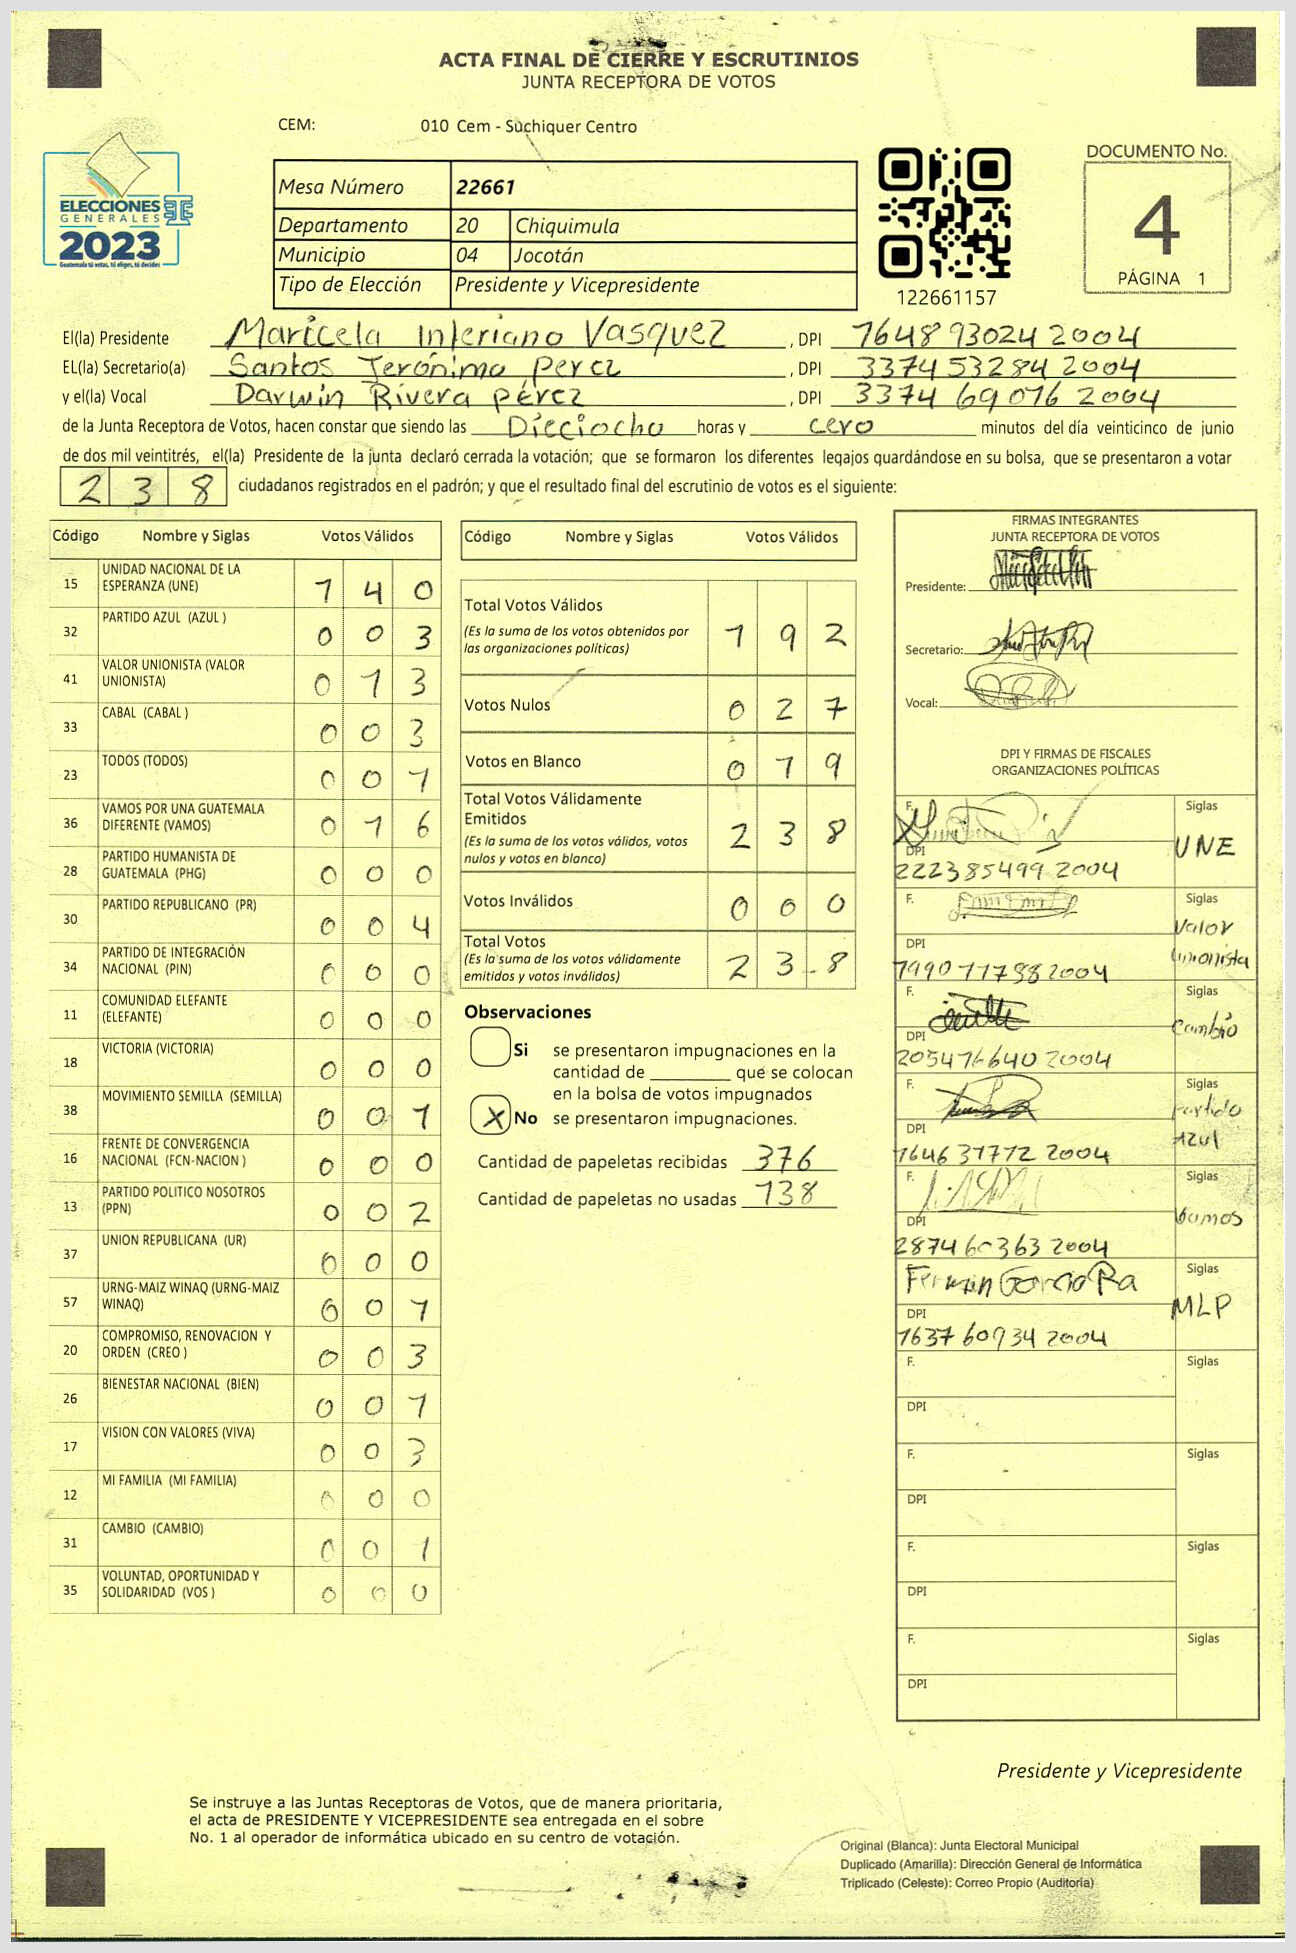 ACTA FINAL DE CIERRE Y ESCRUTINIOS
JUNTA RECEPTORA DE VOTOS
CEM: 010 Cem - Suchiquer Centro
ELECCIONES
GENERALES
2023
Guatemala tú votas, tú eliges, tú decides
Mesa Número 22661
Departamento 20 Chiquimula
Municipio 04 Jocotán
Tipo de Elección Presidente y Vicepresidente
122661157
DOCUMENTO No.
4
PÁGINA 1
El(la) Presidente Maricela Interiano Vasquez, DPI 1648 93024 2004
EL(la) Secretario(a) Santos Jerónimo Perez, DPI 3374 53284 2004
y el(la) Vocal Darwin Rivera pérez, DPI 3374 69076 2004
de la Junta Receptora de Votos, hacen constar que siendo las Dieciocho horas y cero minutos del día veinticinco de junio
de dos mil veintitrés, el(la) Presidente de la junta declaró cerrada la votación; que se formaron los diferentes legajos guardándose en su bolsa, que se presentaron a votar
238 ciudadanos registrados en el padrón; y que el resultado final del escrutinio de votos es el siguiente:
Código Nombre y Siglas Votos Válidos
15 UNIDAD NACIONAL DE LA ESPERANZA (UNE) 1 4 0
32 PARTIDO AZUL (AZUL ) 0 0 3
41 VALOR UNIONISTA (VALOR UNIONISTA) 0 1 3
33 CABAL (CABAL ) 0 0 3
23 TODOS (TODOS) 0 0 1
36 VAMOS POR UNA GUATEMALA DIFERENTE (VAMOS) 0 1 6
28 PARTIDO HUMANISTA DE GUATEMALA (PHG) 0 0 0
30 PARTIDO REPUBLICANO (PR) 0 0 4
34 PARTIDO DE INTEGRACIÓN NACIONAL (PIN) 0 0 0
11 COMUNIDAD ELEFANTE (ELEFANTE) 0 0 0
18 VICTORIA (VICTORIA) 0 0 0
38 MOVIMIENTO SEMILLA (SEMILLA) 0 0 1
16 FRENTE DE CONVERGENCIA NACIONAL (FCN-NACION ) 0 0 0
13 PARTIDO POLITICO NOSOTROS (PPN) 0 0 2
37 UNION REPUBLICANA (UR) 0 0 0
57 URNG-MAIZ WINAQ (URNG-MAIZ WINAQ) 0 0 1
20 COMPROMISO, RENOVACION Y ORDEN (CREO ) 0 0 3
26 BIENESTAR NACIONAL (BIEN) 0 0 1
17 VISION CON VALORES (VIVA) 0 0 3
12 MI FAMILIA (MI FAMILIA) 0 0 0
31 CAMBIO (CAMBIO) 0 0 1
35 VOLUNTAD, OPORTUNIDAD Y SOLIDARIDAD (VOS ) 0 0 0
Código Nombre y Siglas Votos Válidos
Total Votos Válidos 1 9 2
(Es la suma de los votos obtenidos por
las organizaciones políticas)
Votos Nulos 0 2 7
Votos en Blanco 0 1 9
Total Votos Válidamente
Emitidos 2 3 8
(Es la suma de los votos válidos, votos
nulos y votos en blanco)
Votos Inválidos 0 0 0
Total Votos 2 3 8
(Es la suma de los votos válidamente
emitidos y votos inválidos)
Observaciones
Si se presentaron impugnaciones en la
cantidad de ______ que se colocan
en la bolsa de votos impugnados
X No se presentaron impugnaciones.
Cantidad de papeletas recibidas 376
Cantidad de papeletas no usadas 138
FIRMAS INTEGRANTES
JUNTA RECEPTORA DE VOTOS
Presidente:
Secretario:
Vocal:
DPI Y FIRMAS DE FISCALES
ORGANIZACIONES POLÍTICAS
F. Siglas UNE
DPI 222385499 2004
F. Siglas Valor Unionista
DPI 1990 11788 2004
F. Siglas Cambio
DPI 205476640 2004
F. Siglas Partido Azul
DPI 1646 31772 2004
F. Siglas Vamos
DPI 2874 60363 2004
F. Fermin Garcia Ra Siglas MLP
DPI 1637 60934 2004
F. Siglas
DPI
F. Siglas
DPI
F. Siglas
DPI
F. Siglas
DPI
Presidente y Vicepresidente
Se instruye a las Juntas Receptoras de Votos, que de manera prioritaria,
el acta de PRESIDENTE Y VICEPRESIDENTE sea entregada en el sobre
No. 1 al operador de informática ubicado en su centro de votación.
Original (Blanca): Junta Electoral Municipal
Duplicado (Amarilla): Dirección General de Informática
Triplicado (Celeste): Correo Propio (Auditoría)